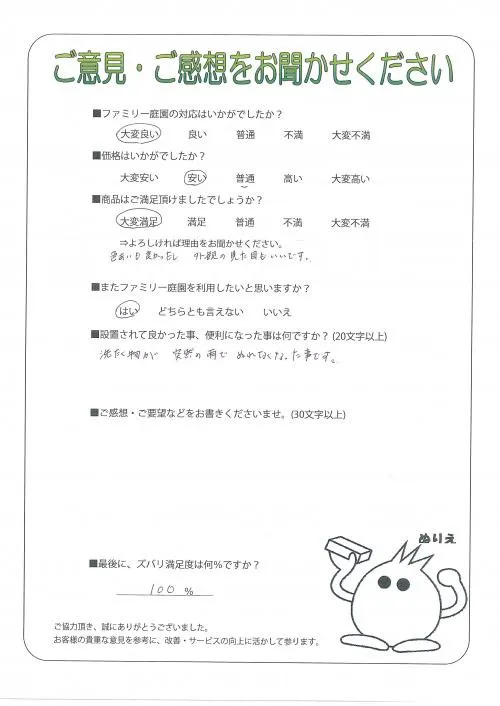 ご意見・ご感想をお聞かせください
■ファミリー庭園の対応はいかがでしたか?
大変良い 良い 普通 不満 大変不満
■価格はいかがでしたか?
大変安い 安い 普通 高い 大変高い
■商品はご満足頂けましたでしょうか?
大変満足 満足 普通 不満 大変不満
⇒よろしければ理由をお聞かせください。
色あいも良かったし 外観の見た目もいいです。
■またファミリー庭園を利用したいと思いますか?
はい どちらとも言えない いいえ
■設置されて良かった事、便利になった事は何ですか?(20文字以上)
洗たく物が 突然の雨で ぬれなくなった事です。
■ご感想・ご要望などをお書きくださいませ。(30文字以上)
ぬりえ
■最後に、ズバリ満足度は何%ですか?
100 %
ご協力頂き、誠にありがとうございました。
お客様の貴重な意見を参考に、改善・サービスの向上に活かして参ります。